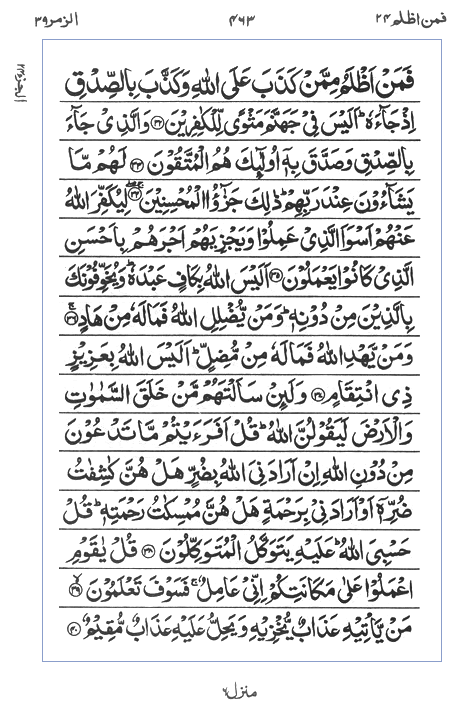 فمن اظلم ٢٤ ٤٦٣ الزمر ٣٩
فَمَنْ اَظْلَمُ مِمَّنْ كَذَبَ عَلَى اللّٰهِ وَكَذَّبَ بِالصِّدْقِ
اِذْ جَآءَهٗ ؕ اَلَيْسَ فِىْ جَهَنَّمَ مَثْوًى لِّلْكٰفِرِيْنَ ﴿۳۲﴾ وَالَّذِىْ جَآءَ
بِالصِّدْقِ وَصَدَّقَ بِهٖۤ اُولٰٓئِكَ هُمُ الْمُتَّقُوْنَ ﴿۳۳﴾ لَهُمْ مَّا
يَشَآءُوْنَ عِنْدَ رَبِّهِمْ ؕ ذٰلِكَ جَزٰٓؤُا الْمُحْسِنِيْنَ ﴿۳۴﴾ لِيُكَفِّرَ اللّٰهُ
عَنْهُمْ اَسْوَاَ الَّذِىْ عَمِلُوْا وَيَجْزِيَهُمْ اَجْرَهُمْ بِاَحْسَنِ
الَّذِىْ كَانُوْا يَعْمَلُوْنَ ﴿۳۵﴾ اَلَيْسَ اللّٰهُ بِكَافٍ عَبْدَهٗ ؕ وَيُخَوِّفُوْنَكَ
بِالَّذِيْنَ مِنْ دُوْنِهٖ ؕ وَمَنْ يُّضْلِلِ اللّٰهُ فَمَا لَهٗ مِنْ هَادٍ ﴿۳۶﴾
وَمَنْ يَّهْدِ اللّٰهُ فَمَا لَهٗ مِنْ مُّضِلٍّ ؕ اَلَيْسَ اللّٰهُ بِعَزِيْزٍ
ذِى انْتِقَامٍ ﴿۳۷﴾ وَلَئِنْ سَاَلْتَهُمْ مَّنْ خَلَقَ السَّمٰوٰتِ
وَالْاَرْضَ لَيَقُوْلُنَّ اللّٰهُ ؕ قُلْ اَفَرَءَيْتُمْ مَّا تَدْعُوْنَ
مِنْ دُوْنِ اللّٰهِ اِنْ اَرَادَنِىَ اللّٰهُ بِضُرٍّ هَلْ هُنَّ كٰشِفٰتُ
ضُرِّهٖۤ اَوْ اَرَادَنِىْ بِرَحْمَةٍ هَلْ هُنَّ مُمْسِكٰتُ رَحْمَتِهٖ ؕ قُلْ
حَسْبِىَ اللّٰهُ ؕ عَلَيْهِ يَتَوَكَّلُ الْمُتَوَكِّلُوْنَ ﴿۳۸﴾ قُلْ يٰقَوْمِ
اعْمَلُوْا عَلٰى مَكَانَتِكُمْ اِنِّىْ عَامِلٌ ۚ فَسَوْفَ تَعْلَمُوْنَ ﴿۳۹﴾
مَنْ يَّاْتِيْهِ عَذَابٌ يُّخْزِيْهِ وَيَحِلُّ عَلَيْهِ عَذَابٌ مُّقِيْمٌ ﴿۴۰﴾
منزل ٦